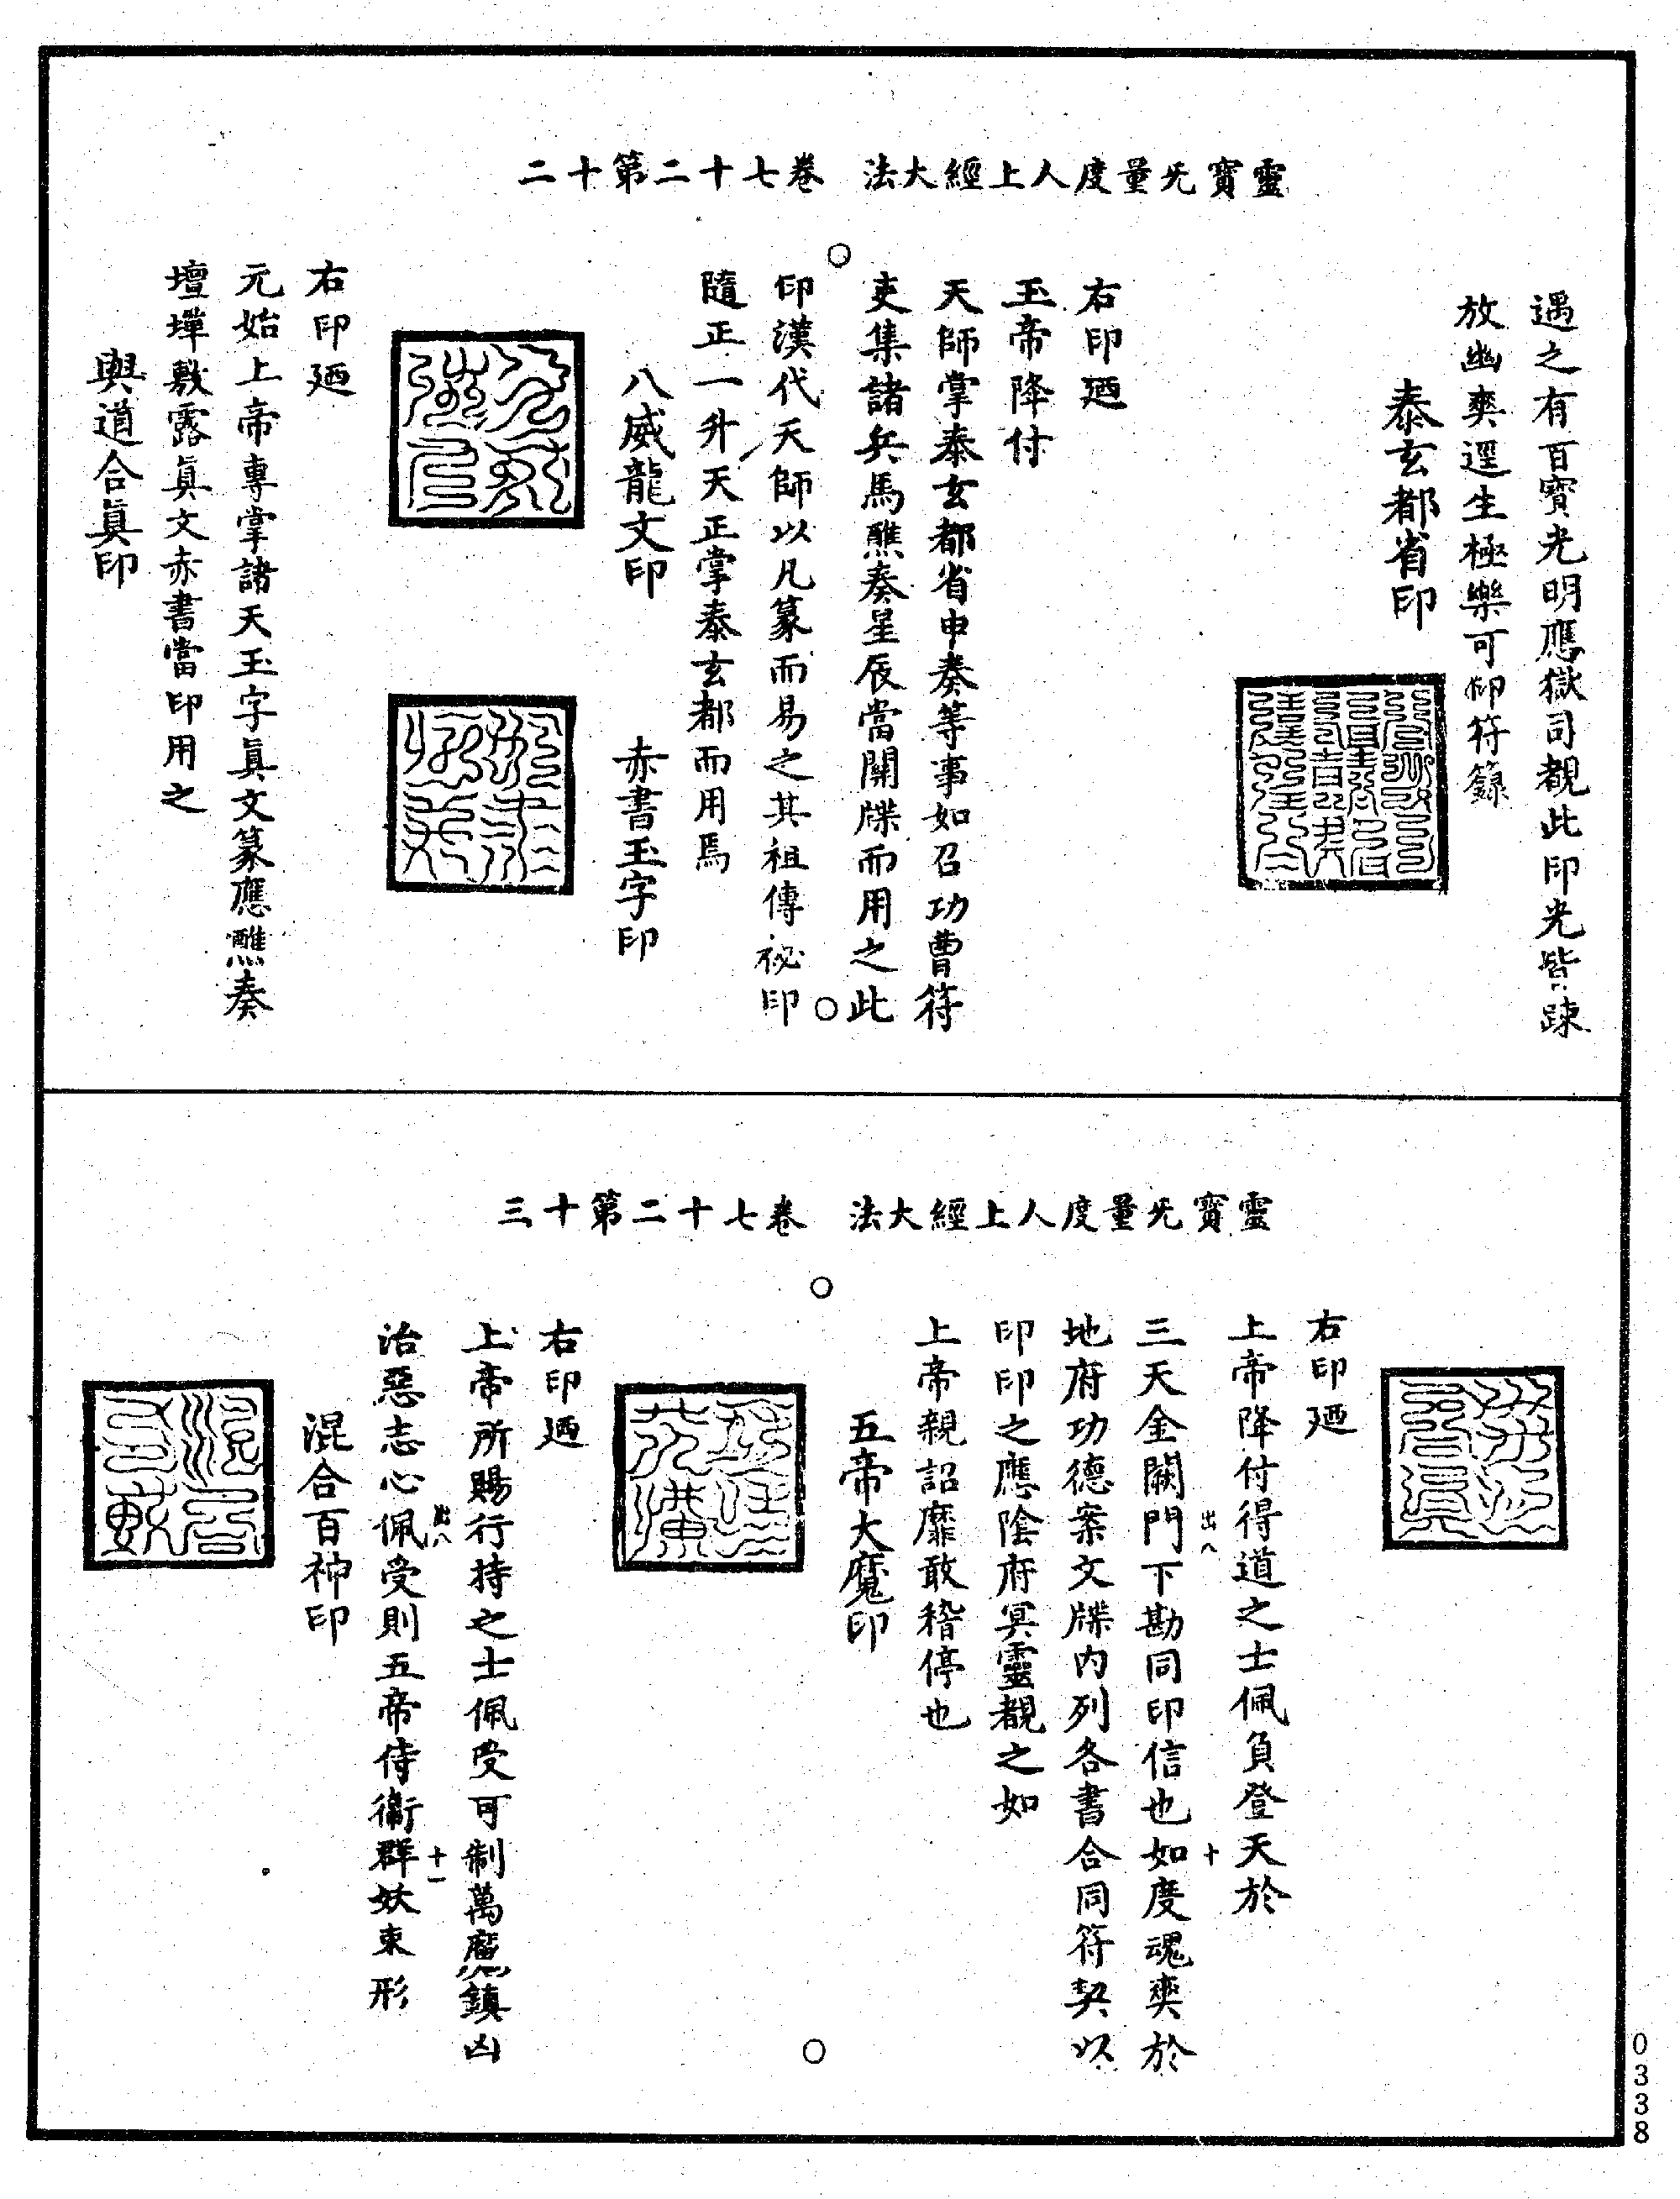 靈寶旡量度人上經大法　卷七十二第十二
遇之有百寶光明應獄司覩此印光皆踈
放幽爽逕生極樂可仰符籙
泰玄都省印
右印廼
玉帝降付
天師掌泰玄都省申奏等事如召功曹符
吏集諸兵馬醮奏星辰當關牒而用之此
印漢代天師以凡篆而易之其祖傳祕印
隨正一升天正掌泰玄都而用焉
八威龍文印
赤書玉字印
右印廼
元始上帝專掌諸天玉字眞文篆應醮奏
壇墠敷露眞文赤書當印用之
與道合眞印
靈寶旡量度人上經大法　卷七十二第十三
右印廼
上帝降付得道之士佩負登天於
出入
十
三天金闕門下勘同印信也如度魂爽於
地府功德案文牒内列各書合同符契以
印印之應陰府冥靈覩之如
上帝親詔靡敢稽停也
五帝大魔印
右印廼
上帝所賜行持之士佩受可制萬魔鎮凶
出入
十一
治惡志心佩受則五帝侍衞群妖束形
混合百神印
0338